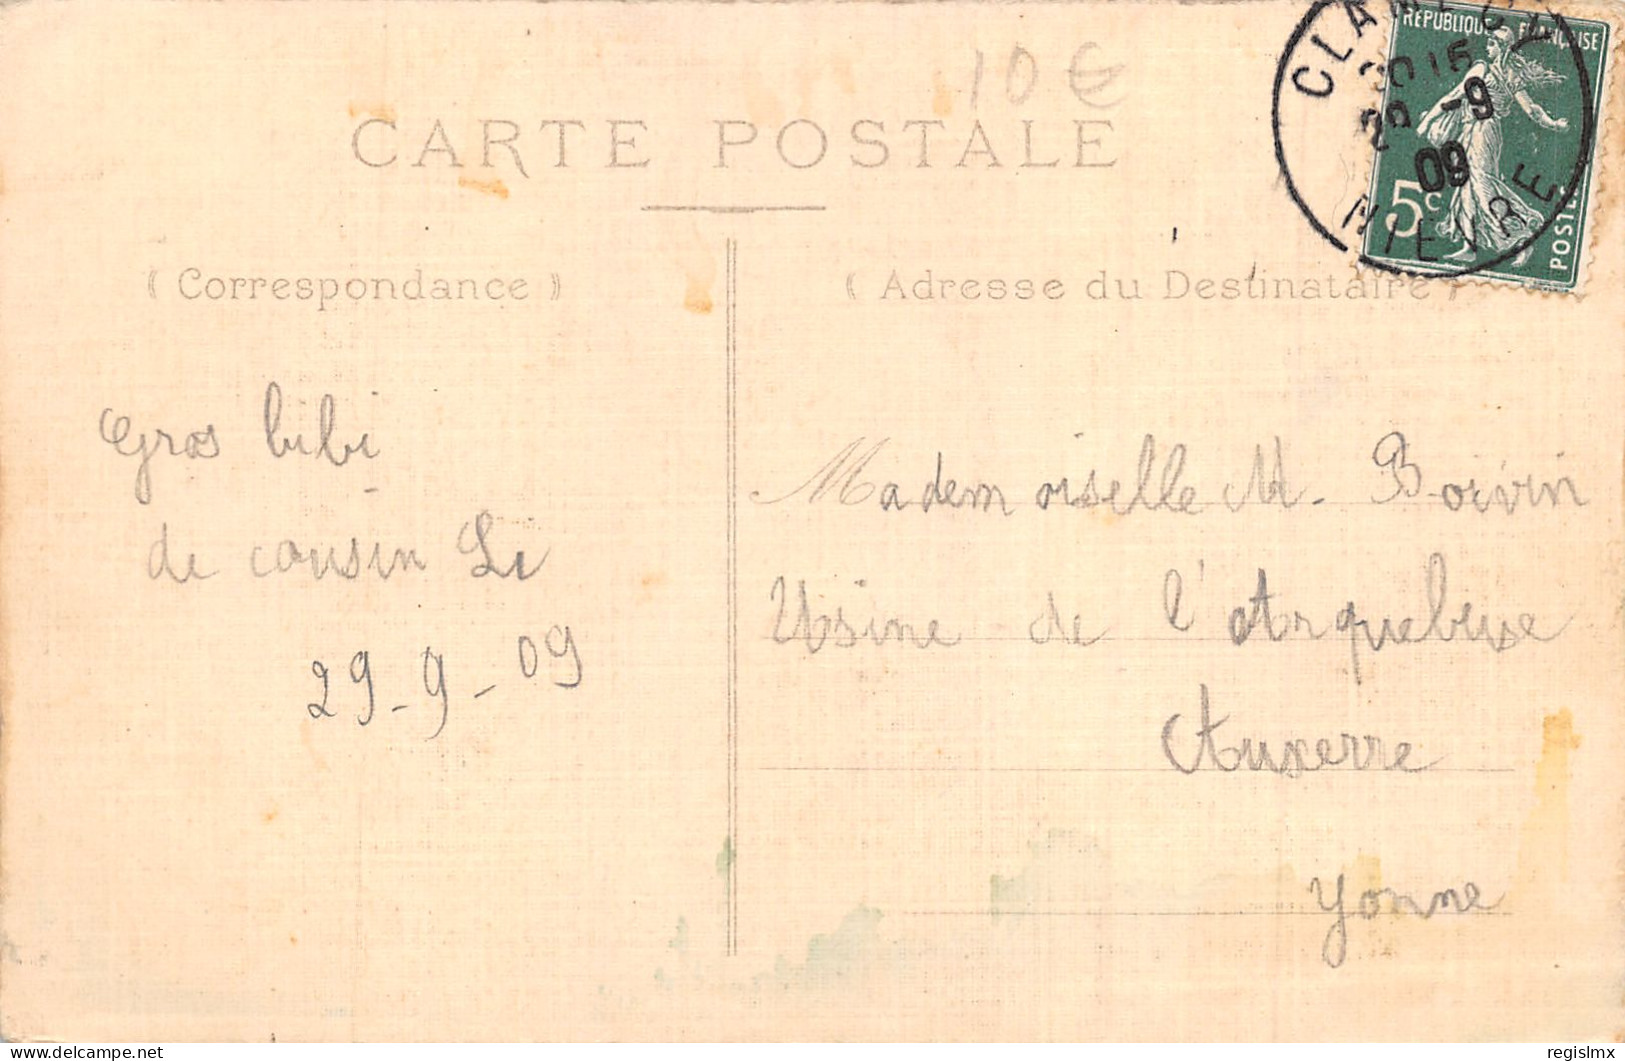 10 €
CARTE POSTALE
RÉPUBLIQUE FRANÇAISE
5c
POSTES
CLAMECY
15
29 -9
09
NIEVRE
( Correspondance )
( Adresse du Destinataire )
Gros bibi
de cousin Li
29-9-09
Mademoiselle M. Boivin
Usine de l'Arquebuse
Auxerre
Yonne
www.delcampe.net
regislmx